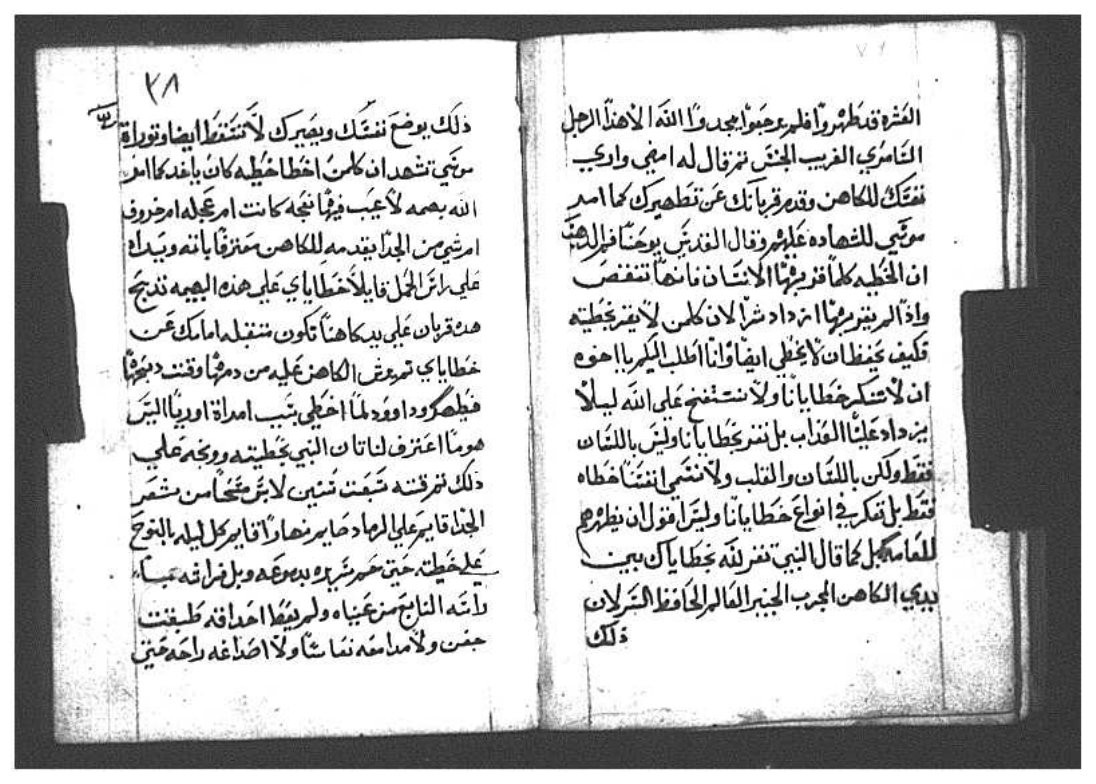 العشره قد طهروا فلم يرجعوا يمجدوا الله الا هذا الرجل
السامري الغريب الجنس ثم قال له امضي واري
نفسك للكاهن وقدم قربانك عن تطهيرك كما امر
موسي للشهاده عليهم وقال القديس يوحنا فم الدهب
ان الخطيه كلما قر بها الانسان فانها تنقص
واذا لم يقر بها ازداد شرا لان كلمن لا يقر بخطيته
فكيف يحفظ ان لا يخطي ايضا وانا اطلب اليكم يا اخوه
ان لا ننكر خطايانا ولا على الله ليلا
يزداد علينا العذاب بل نقر بخطايانا وليس باللسان
فقط ولكن باللسان والقلب ولا نسمي انفسنا خطاه
فقط بل نفكر في انواع خطايانا وليس اقول ان نظهرهم
للعامه بل كما قال النبي تقر لله بخطاياك بين
يدي الكاهن المجرب الخبير العالم الحافظ السر لان
ذلك
٣٨
ذلك يوضع نفسك ويصيرك لا تسقط ايضا وتوراة
موسي تشهد ان كلمن اخطا خطيه كان ياخد كما امر
الله بهيمه لا عيب فيها نعجه كانت ام عجله ام خروف
ام شي من الجدا يقدمه للكاهن معترفا باثمه ويداه
علي راس الحمل قايلا خطاياي علي هذه البهيمه تدبح
هده قربان علي يد كاهنا تكون متقبله امامك عن
خطاياي ثم يرش الكاهن عليه من دمها وقت دبحها
داوود لما اخطي بسبب امراة اوريا اليس
هوما اعترف لناتان النبي بخطيته ووبخه علي
ذلك ثم سبعت سنين لابس مسحا من شعر
الجدا قايم علي الرماد صايم نهارا قايم كل ليله بالنوح
علي خطيته حتى سريره بدموعه وبل فراشه
النابع من عيناه ولم احداقه طبقت
جفن ولا مدامعه نعاسا ولا اصداغه راحه حتى